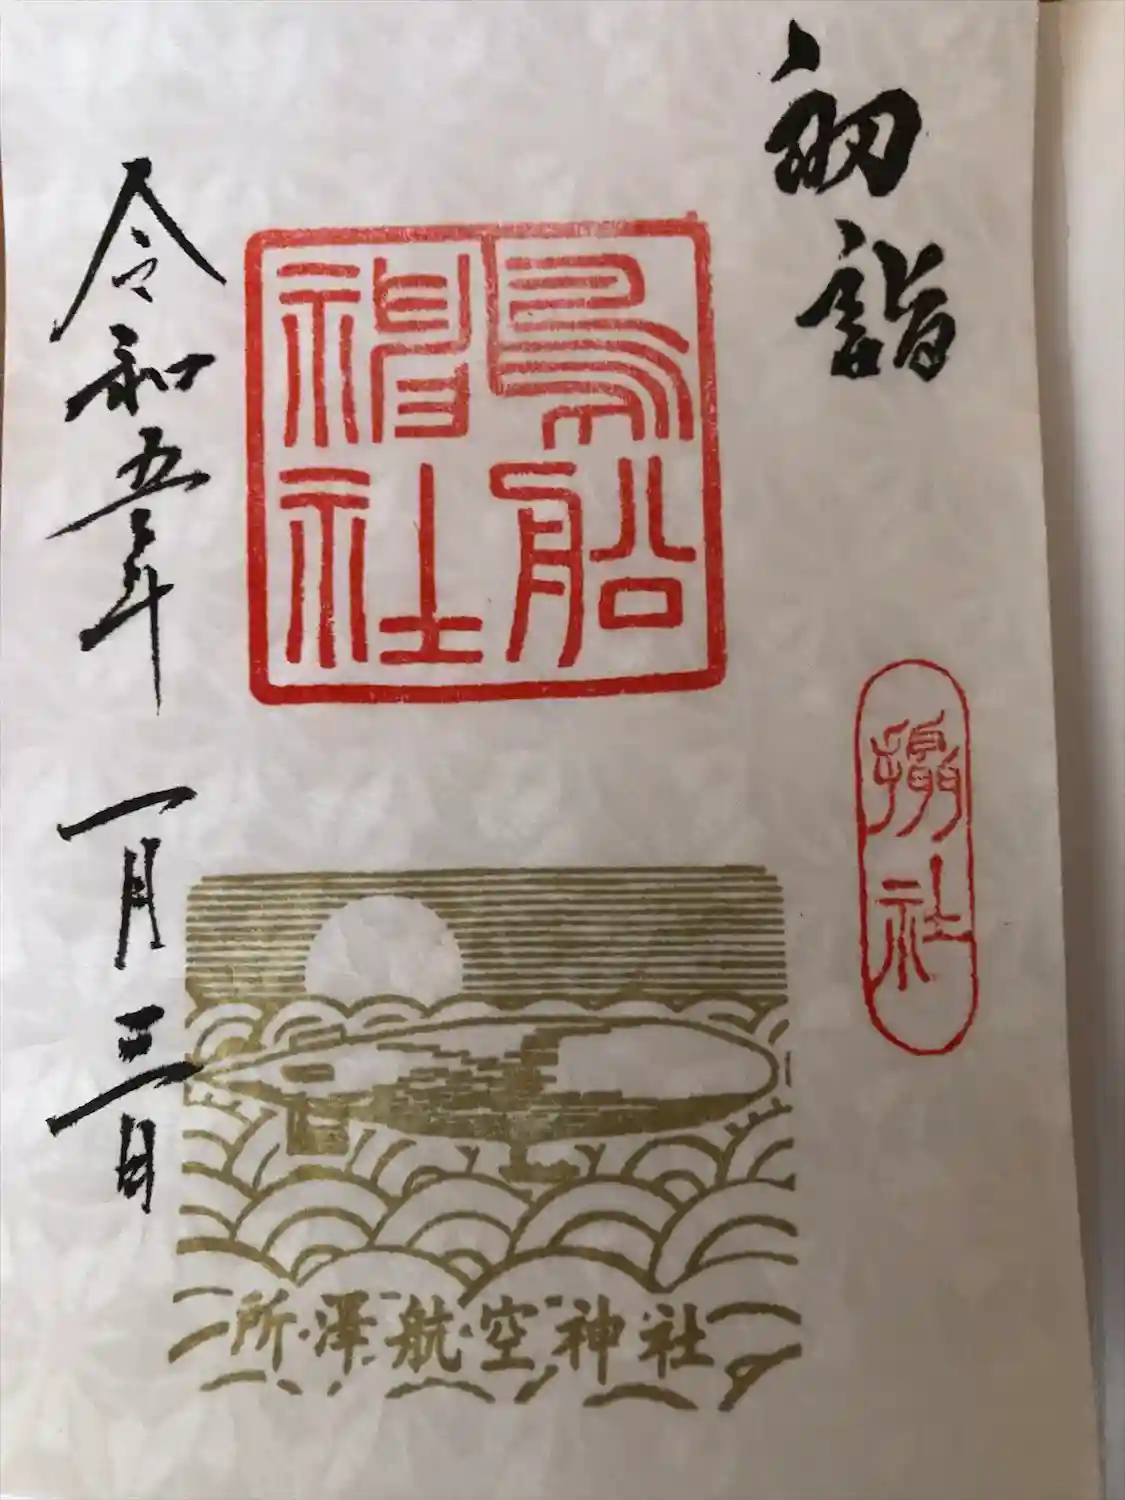 初詣
鳥船
神社
攝社
令和五年 一月三日
所澤航空神社